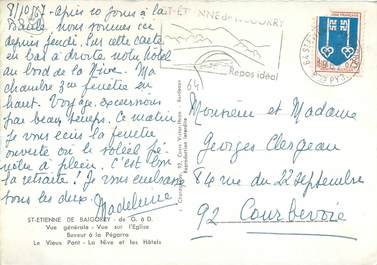 8/10/67 - après 10 jours à la
Baule nous voici ici
depuis jeudi. Sur cette carte
en bas à droite notre hôtel
au bord de la Nive. Ma
chambre 3e fenêtre en
haut. Voyage
pas beau temps. Ce matin
Je vous écris la fenêtre
ouverte où le soleil pé-
nètre à plein. C'est bon
la retraite! Je vous embrasse
tous les deux. Madeleine
ST-ETIENNE DE BAIGORRY - de G. à D.
Vue générale - Vue sur l'Eglise
Buveur à la Pégarra
Le Vieux Pont - La Nive et les Hôtels
ST-ETIENNE de BAIGORRY
Repos idéal
64
Reproduction interdite
Monsieur et Madame
Georges Clergeau
84 rue du 22 septembre
92 Courbevoie